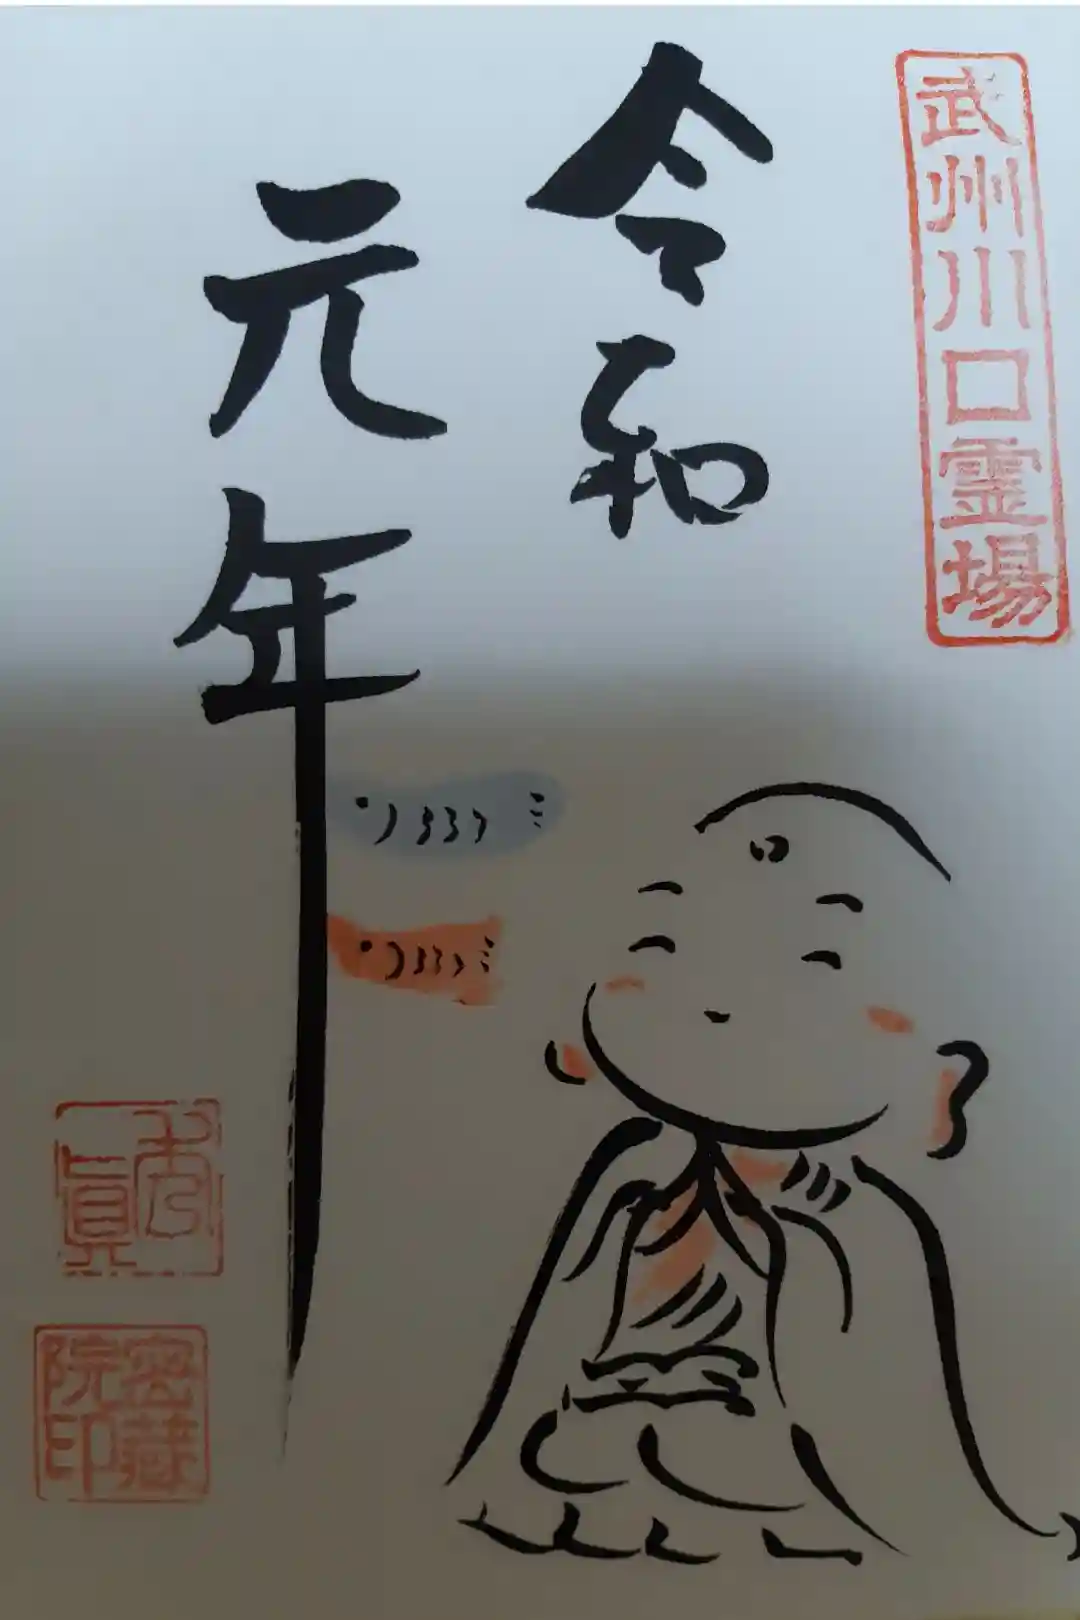 武州川口霊場
令和
元年
密蔵
院印